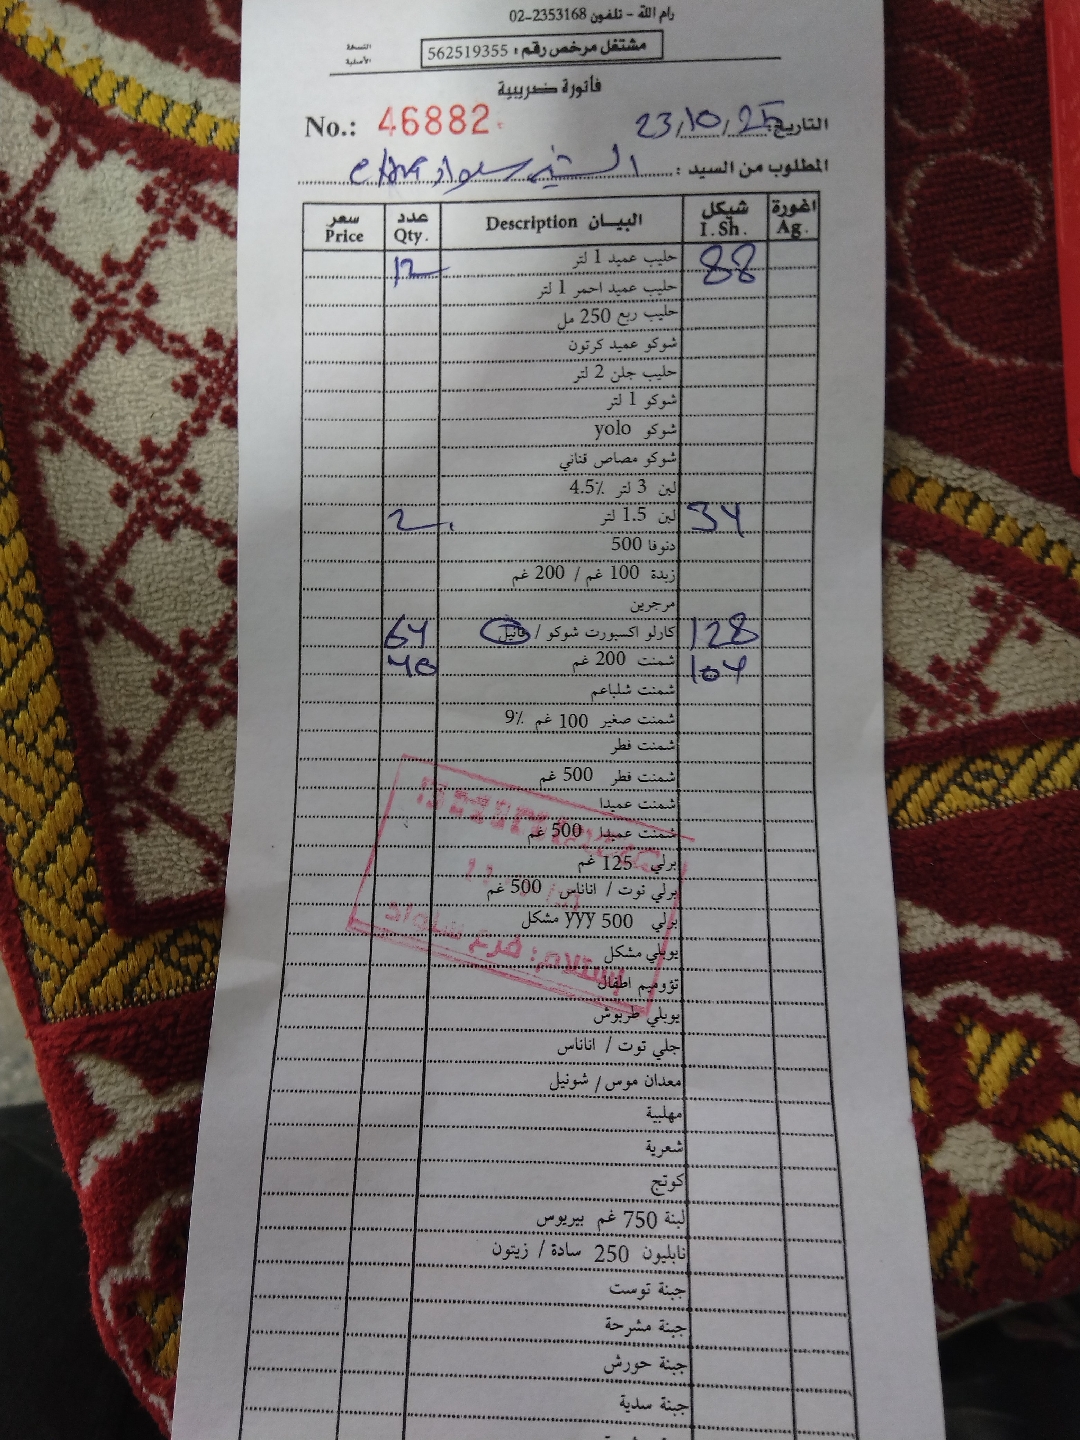 رام الله - تلفون 02-2353168
مشتغل مرخص رقم : 562519355
النسخة
الأصلية
فاتورة ضريبية
No.: 46882
التاريخ: 23/10/25
المطلوب من السيد :
سعر عدد البيان Description شيكل اغورة
Price Qty. I.Sh. Ag.
حليب عميد 1 لتر 12 88
حليب عميد احمر 1 لتر
حليب ربع 250 مل
شوكو عميد كرتون
حليب جلن 2 لتر
شوكو 1 لتر
شوكو yolo
شوكو مصاص قناني
لبن 3 لتر 4.5٪
لبن 1.5 لتر 2 34
دنوفا 500
زبدة 100 غم / 200 غم
مرجرين
كارلو اكسبورت شوكو / فانيل 64 128
شمنت 200 غم 40 104
شمنت شلباعم
شمنت صغير 100 غم 9٪
شمنت فطر
شمنت فطر 500 غم
شمنت عميدا
شمنت عميدا 500 غم
برلي 125 غم
برلي توت / اناناس 500 غم
برلي 500 yyy مشكل
يوبلي مشكل
إستلام: فرع سلواد
تؤوميم اطفال
يوبلي طربوش
جلي توت / اناناس
معدان موس / شونيل
مهلبية
شعرية
كوتج
لبنة 750 غم بيريوس
نابليون 250 سادة / زيتون
جبنة توست
جبنة مشرحة
جبنة حورش
جبنة سدية